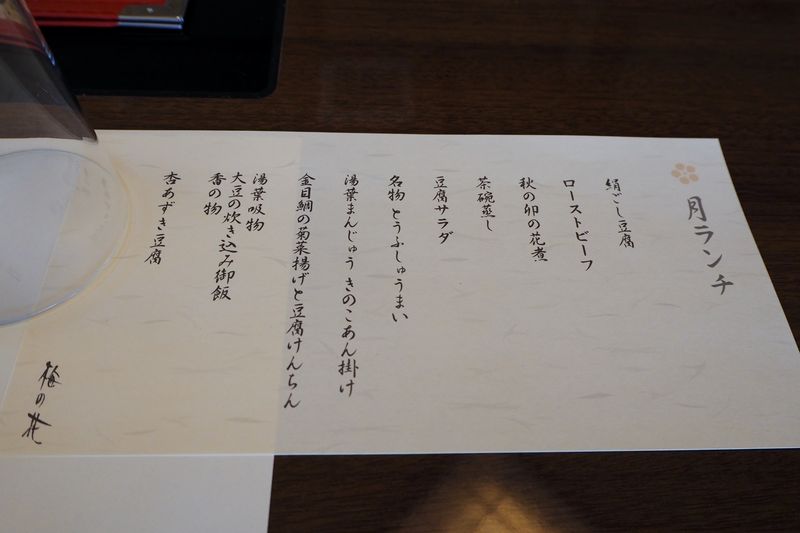 月ランチ
絹ごし豆腐
ローストビーフ
秋の卯の花煮
茶碗蒸し
豆腐サラダ
名物とうふしゅうまい
湯葉まんじゅうきのこあん掛け
金目鯛の菊菜揚げと豆腐けんちん
湯葉吸物
大豆の炊き込み御飯
香の物
杏あずき豆腐
梅の花